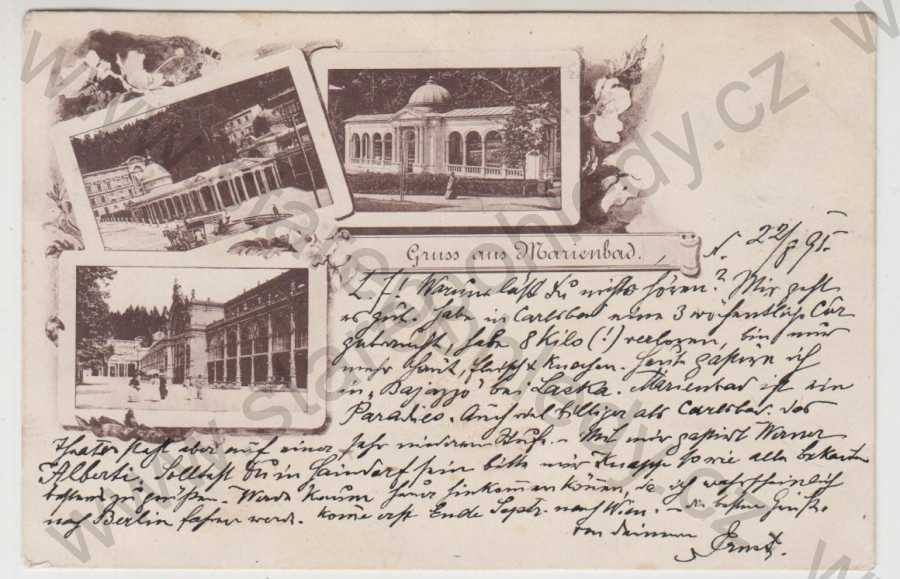 Gruss aus Marienbad.
N. 22/8 95.
L. F.! Warum läßt Du nichts hören? Mir geht
es gut. Habe in Carlsbad eine 3 wöchentliche Cur
gebraucht, habe 8 Kilo (!) verloren, bin nur
mehr Haut, Fleisch & Knochen. Heute gastire ich
in „Bajazzo" bei Laska. Marienbad ist ein
Paradies. Auch viel billiger als Carlsbad. Das
Theater steht aber auf einer sehr niederen Stufe. – Mit mir gastirt Werner
Alberti. Solltest Du in Haindorf sein bitte mir Knapp sowie alle Bekannten
bestens zu grüßen. Werde kaum heuer hinkommen können, da ich wahrscheinlich
nach Berlin fahren werde. Komme erst Ende Septr. nach Wien. – Die besten Grüße
von Deinem Ernst.
www.stare-pohlednice.cz